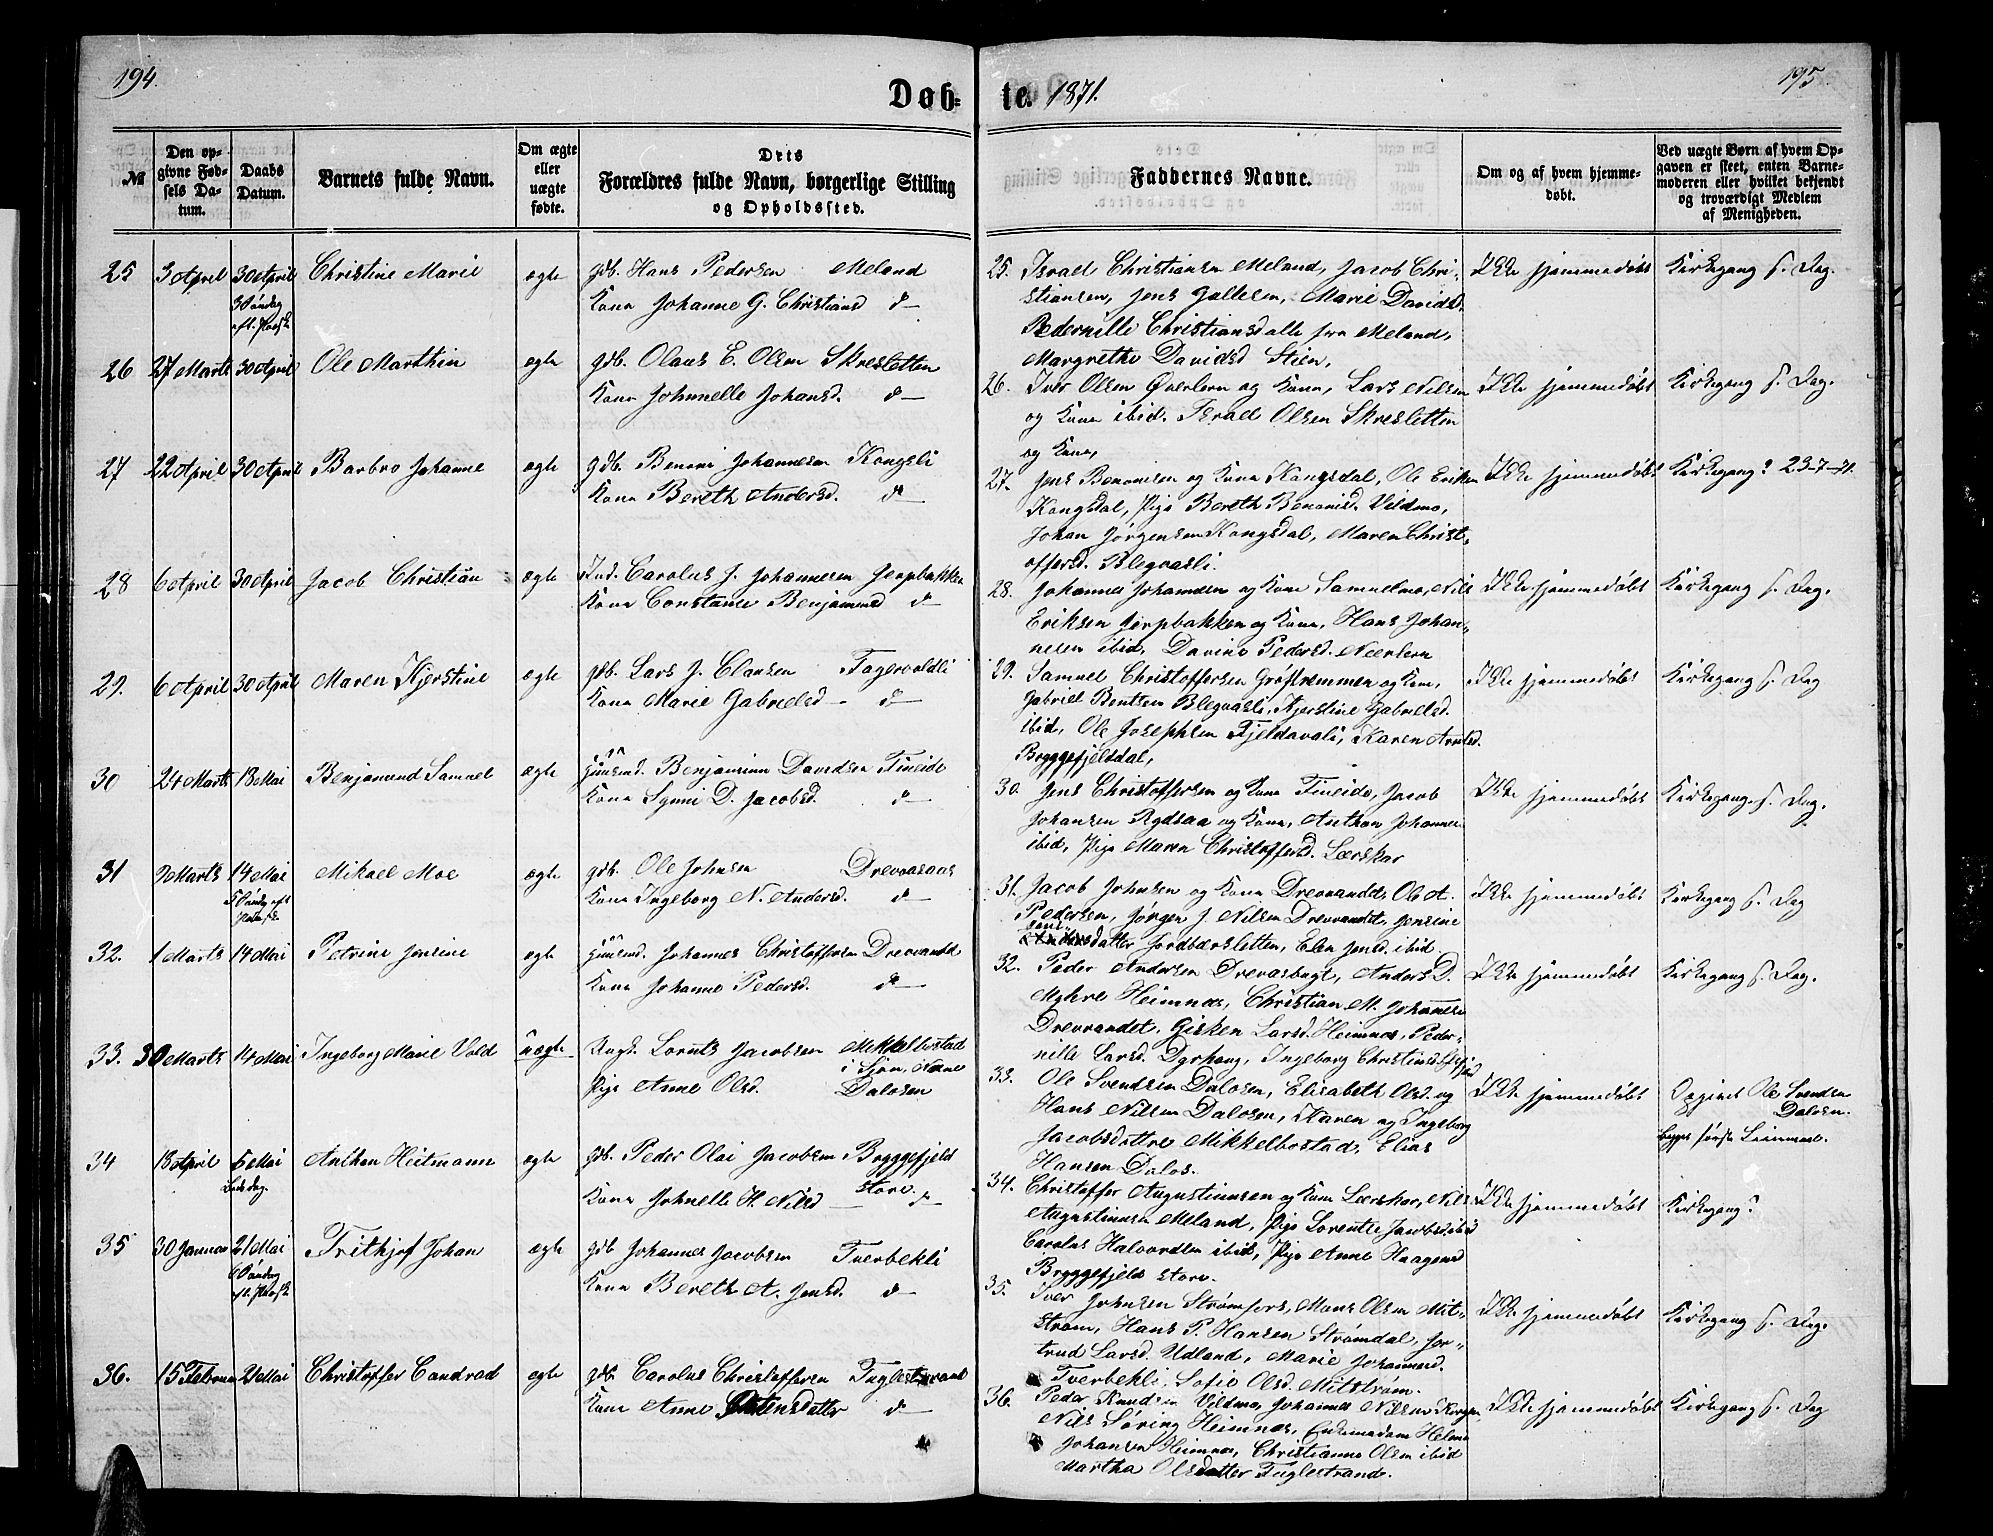 194.
Døb-
№
Den op-
givne Fød-
sels Da-
tum.
Daabs
Datum.
Barnets fulde Navn.
Om ægte
eller
uægte
fødte.
Dets
Forældres fulde Navn, borgerlige Stilling
og Opholdssted.
25 3 April 30 April Christine Marie ægte gdb. Hans Pedersen Meland
3 Søndag Kone Johanne G. Christiansd d–
eft. Paaske
26 27 Marts 30 April Ole Marthin ægte gdb. Olaus E. Olsen Skresletten
Kone Johnnelle Johansd. d–
27 22 April 30 April Barbro Johanne ægte gdb. Benoni Johannesen Kongsli
Kone Bereth Andersd. d–
28 6 April 30 April Jacob Christian ægte Ind. Carolus J. Johannesen Jerpbakken
Kone Constanse Benjaminsd d–
29. 6 April 30 April Maren Kjerstine ægte gdb. Lars J. Clausen Fagervoldli
Kone Marie Gabrielsd – d–
30 24 Marts 18 Mai Benjamund Samuel ægte Huusmd. Benjamin Davidsen Fineide
Kone Synni D. Jacobsd. d–
31 9 Marts 14 Mai Mikael Moe ægte gdb. Ole Johnsen Drevvasaas
5 Søndag eft. Kone Ingeborg N. Andersd. d–
Paaske
32. 1 Marts 14 Mai Petrine Jensine ægte Huusmd. Johannes Christoffersen Drevvandet
Kone Johanne Pedersd. d–
33. 30 Marts 14 Mai Ingeborg Marie Vold uægte Ungk. Lornts Jacobsen Mikkelbostad
i Sjon, Næsne
Pige Anne Olsd. Dalosen
34 13 April 5 Mai Anthon Heitmann ægte gdb. Peder Olai Jacobsen Bryggefjeld
Bededag. store
Kone Johnelle H. Nilsd – d–
35 30 Januar 21 Mai Frithjof Johan ægte gdb Johannes Jacobsen Tverbekli
6 Søndag Kone Bereth A. Jensd. d–
eft. Paaske
36. 15 Februar 21 Mai Christoffer Candrad ægte gdb. Carolus Christoffersen Fuglestrand
Kone Anne Petersdatter d–
te. 1871.
195
Faddernes Navne.
Om og af hvem hjemme-
døbt.
Ved uægte Børn af hvem Op-
gaven er skeet, enten Barne-
moderen eller hvilket bekjendt
og troværdigt Medlem
af Menigheden.
25. Israel Christiansen Meland, Jacob Chri- Ikke hjemmedøbt Kirkegang s. Dag.
stiansen, Jens Galtesen, Marie Davidsd.
Pedernille Christiansd alle fra Meland,
Margrethe Davidsd Stien,
26. Iver Olsen Øverlern og Kone, Lars Nilsen Ikke hjemmedøbt Kirkegang s. Dag.
og Kone ibid. Israel Olsen Skresletten
og Kone,
27. Jens Benonisen og Kone Kongsdal, Ole Eriksen Ikke hjemmedøbt Kirkegang? 23-7-71.
Kongsdal, Pige Bereth Benonisd. Vildmo,
Johan Jørgensen Kongsdal, Maren Christ-
offersd. Blegvasli.
28. Johannes Johansen og Kone Samuelmo, Nils Ikke hjemmedøbt Kirkegang s. Dag.
Eriksen Jerpbakken og Kone, Hans Johan-
nesen ibid, Davine Pedersd. Nerlern
29. Samuel Christoffersen Grøftremmen og Kone, Ikke hjemmedøbt Kirkegang s. Dag
Gabriel Bentsen Blegvasli, Kjerstine Gabrielsd.
ibid, Ole Josephsen Fjeldavli, Karen Arntsd.
Bryggefjelddal,
30. Jens Christoffersen og Kone Fineide, Jacob Ikke hjemmedøbt Kirkegang s. Dag.
Johansen Rydsaa og Kone, Anthon Johannes.
ibid, Pige Maren Christoffersd. Lerskar
31. Jacob Johnsen og Kone Drevvandet, Ole A. Ikke hjemmedøbt Kirkegang s. Dag
Pedersen, Jørgen J. Nilsen Drevvandet, Jensine
datter Jordbærsletten, Elen Jensd. ibid.
32. Peder Andersen Drevasbugt, Anders D. Ikke hjemmedøbt Kirkegang s. Dag.
Myhre Heimnes, Christian M. Johannesen
Drevvandet, Gjerken Larsd. Heimnes, Peder-
nille Larsd. Dyrhaug, Ingeborg Christinsd.
33. Ole Svendsen Dalosen, Elisabeth Olsd. og Ikke hjemmedøbt Opgivet Ole Svendsen
Hans Nilsen Dalosen, Karen og Ingeborg Dalosen.
Jacobsdattre Mikkelbostad, Elias Begges første Leiermaal.
Hansen Dalos.
34. Christoffer Augustinusen og Kone Lerskar, Nils Ikke hjemmedøbt Kirkegang?
Augustinusen Meland, Pige Lorentse Jacobsd ibid
Carolus Halvordsen ibid, Pige Anne Haagensd
Bryggefjeld store.
35. Iver Johnsen Strømfors, Mons Olsen Mit- Ikke hjemmedøbt Kirkegang s. Dag.
strøm, Hans P. Hansen Strømdal, Jer-
trud Larsd. Udland, Marie Johannesd.
Tverbekli, Sofie Olsd. Mitstrøm.
36. Peder Knudsen Vildmo, Johannes Nilsen Korgen, Ikke hjemmedøbt Kirkegang s. Dag
Nils Søring Heimnes, Enkemadam Helene
Johansen Heimnes, Christianne Olsen ibid
Martha Olsdatter Fuglestrand.